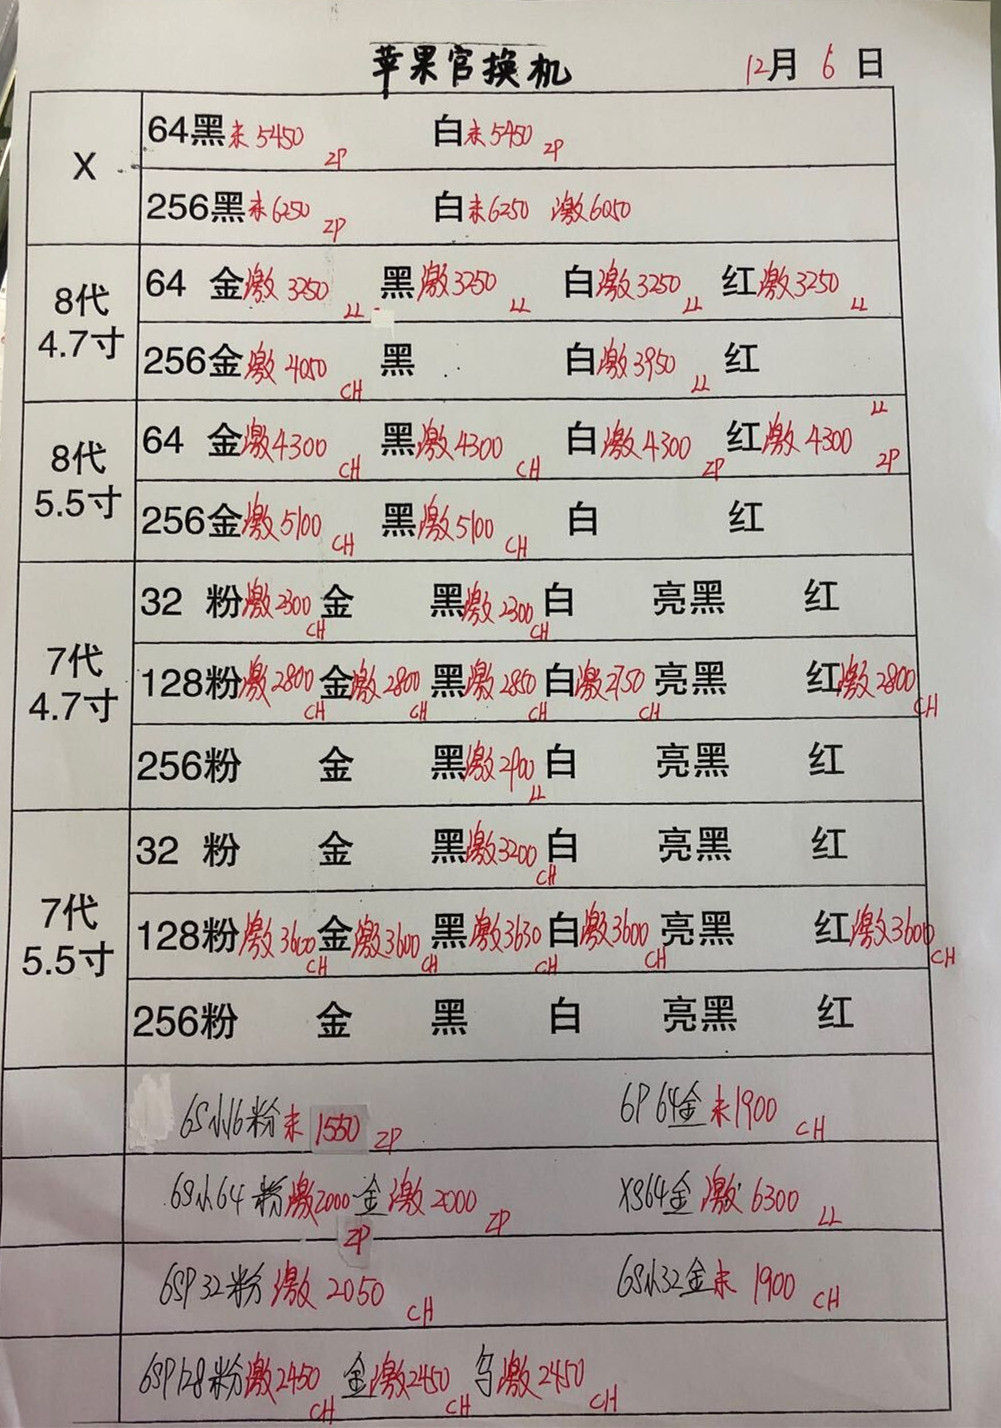 苹果官换机 12月6日
X
64黑未5450 ZP 白未5450 ZP
256黑未6250 ZP 白未6250 激6050
8代
4.7寸
64 金激3250 LL 黑激3250 LL 白激3250 LL 红激3250 LL
256金激4050 CH 黑 白激3950 LL 红
8代
5.5寸
LL
64 金激4300 CH 黑激4300 CH 白激4300 ZP 红激4300 ZP
256金激5100 CH 黑激5100 CH 白 红
7代
4.7寸
32 粉激2300 CH 金 黑激2300 CH 白 亮黑 红
128粉激2800 CH 金激2800 CH 黑激2850 CH 白激2750 CH 亮黑 红激2800 CH
256粉 金 黑激2900 LL 白 亮黑 红
7代
5.5寸
32 粉 金 黑激3200 CH 白 亮黑 红
128粉激3600 CH 金激3600 CH 黑激3630 CH 白激3600 CH 亮黑 红激3600 CH
256粉 金 黑 白 亮黑 红
6S小16粉未1550 ZP 6P 64金未1900 CH
6S小64粉激2000 ZP 金激2000 ZP XS64金激6300 LL
6SP32粉激2050 CH 6S小32金未1900 CH
6SP128粉激2450 CH 金激2450 CH 激2450 CH